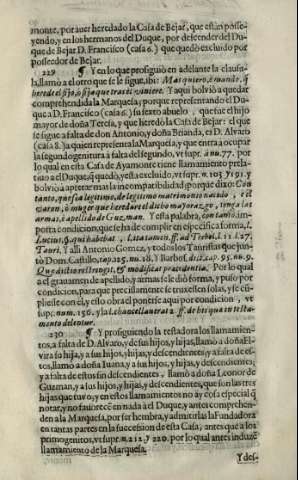 monte, por auer heredado la Casa de Bejar, que estàn posse-
yendo, y en los hermanos del Duque, por descender del Du-
que de Bejar D. Francisco (casa 6.) que quedò excluido por
posseedor de Bejar.
229 ¶ Y en lo que prosiguiò en adelante la clausu-
la, llamò a el otro que se sigue, ibi:
hereda el hijo, o hija que tras èl viniere. Y aqui bolviò a quedar
comprehendida la Marquesa, y porque representando el Du-
que a D. Francisco (casa 6.) su texto abuelo, que fue el hijo
mayor de doña Teresa, y que heredò la Casa de Bejar: el que
se sigue a falta de don Antonio, y doña Brianda, es D. Alvaro
(casa 8.) a quien representa la Marquesa, y que entra a ocupar
la segundogenitura a falta del segundo, vt supr. à nu. 77. por
lo qual en esta Casa de Ayamonte tiene llamamiento preci-
so a el Duque, q̃ quedò, y està excluido, vt supr. n. 103 y 191. y
bolviò a apretar mas la incompatibilidad, porque dixo: Con
tanto, que sea legitimo, de legitimo matrimonio nacido, è el
varon, ò muger que heredare el dicho mayorazgo, tenga las
armas, è apellido de Guzman. Y esta palabra, con tanto, im-
porta condicion, que se ha de cumplir en especifica forma, l.
Lucius,
Tauri. Y alli Antonio Gomez, y todos los Tauristas que jun-
tò Dom. Castillo, cap. 25. nu. 18. y Barbos. dict. cap. 95. nu. 9.
Quod dictio restringit, & modificat præcedentia. Por lo qual
el grauamen de apellido, y armas se le diò forma, y puso por
condicion, para que precissamente se truxessen solas, y se cũ-
pliesse con el, y esto obra el ponerse aqui por condicion, vt
supr. num. 150. y la l.
mento deleatur.
230 ¶ Y prosiguiendo la testadora los llamamien-
tos, a falta de D. Alvaro, y de sus hijos, y hijas, llamò a doña El-
vira su hija, y a sus hijos, y hijas, y descendientes, y a falta de es-
tos, llamò a doña Iuana, y a sus hijos, y hijas, y descendientes;
y a falta de estos sus descendientes, llamò a doña Leonor de
Guzman, y a sus hijos, y hijas, y descendientes, que son las tres
hijas que tuvo, y en estos llamamientos no ay cosa especial q̃
notar, y no fauorece en nada a el Duque, y antes comprehen-
den a la Marquesa, por ser hembra, y admitir las la Fundadora
en tantas partes en la succession de esta Casa, antes que a los
primogenitos, vt supr. n. 212. y 220. por lo qual antes induze
llamamiento de la Marquesa.
Y des-